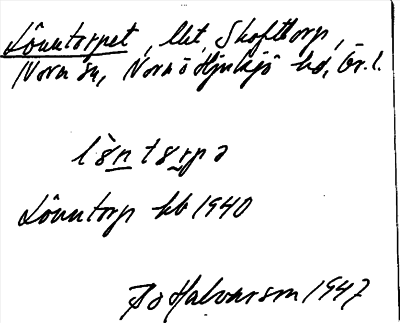 Lönntorpet, lht, Skofttorp,
Nora sn, Nora o Hjulsjö hd, Ör. l.
lö̀ntorpə
Lönntorp kb 1940
Bo Halvarson 1947